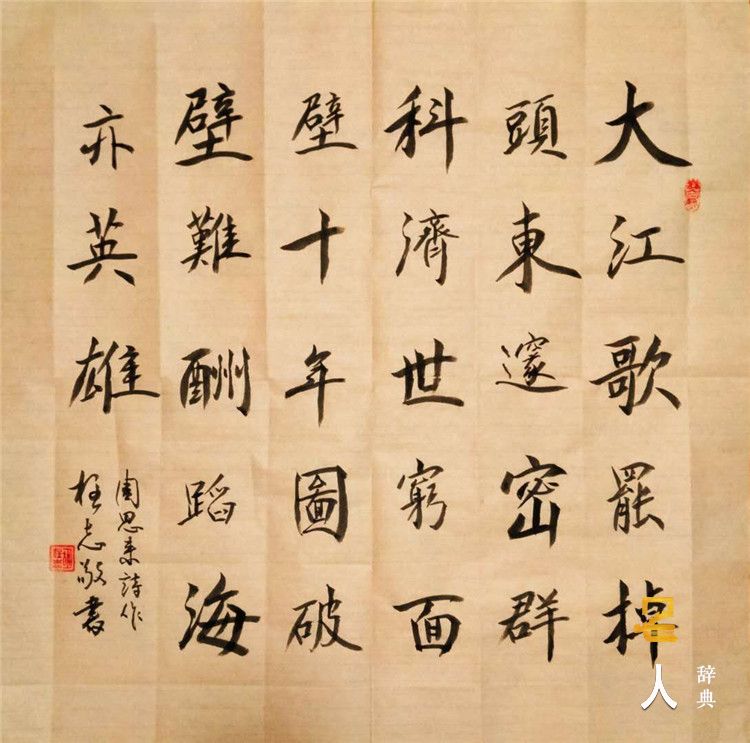 大江歌罷棹
頭東邃密群
科濟世窮面
壁十年圖破
壁難酬蹈海
亦英雄
周恩来詩作
志敬書
名人
辞典